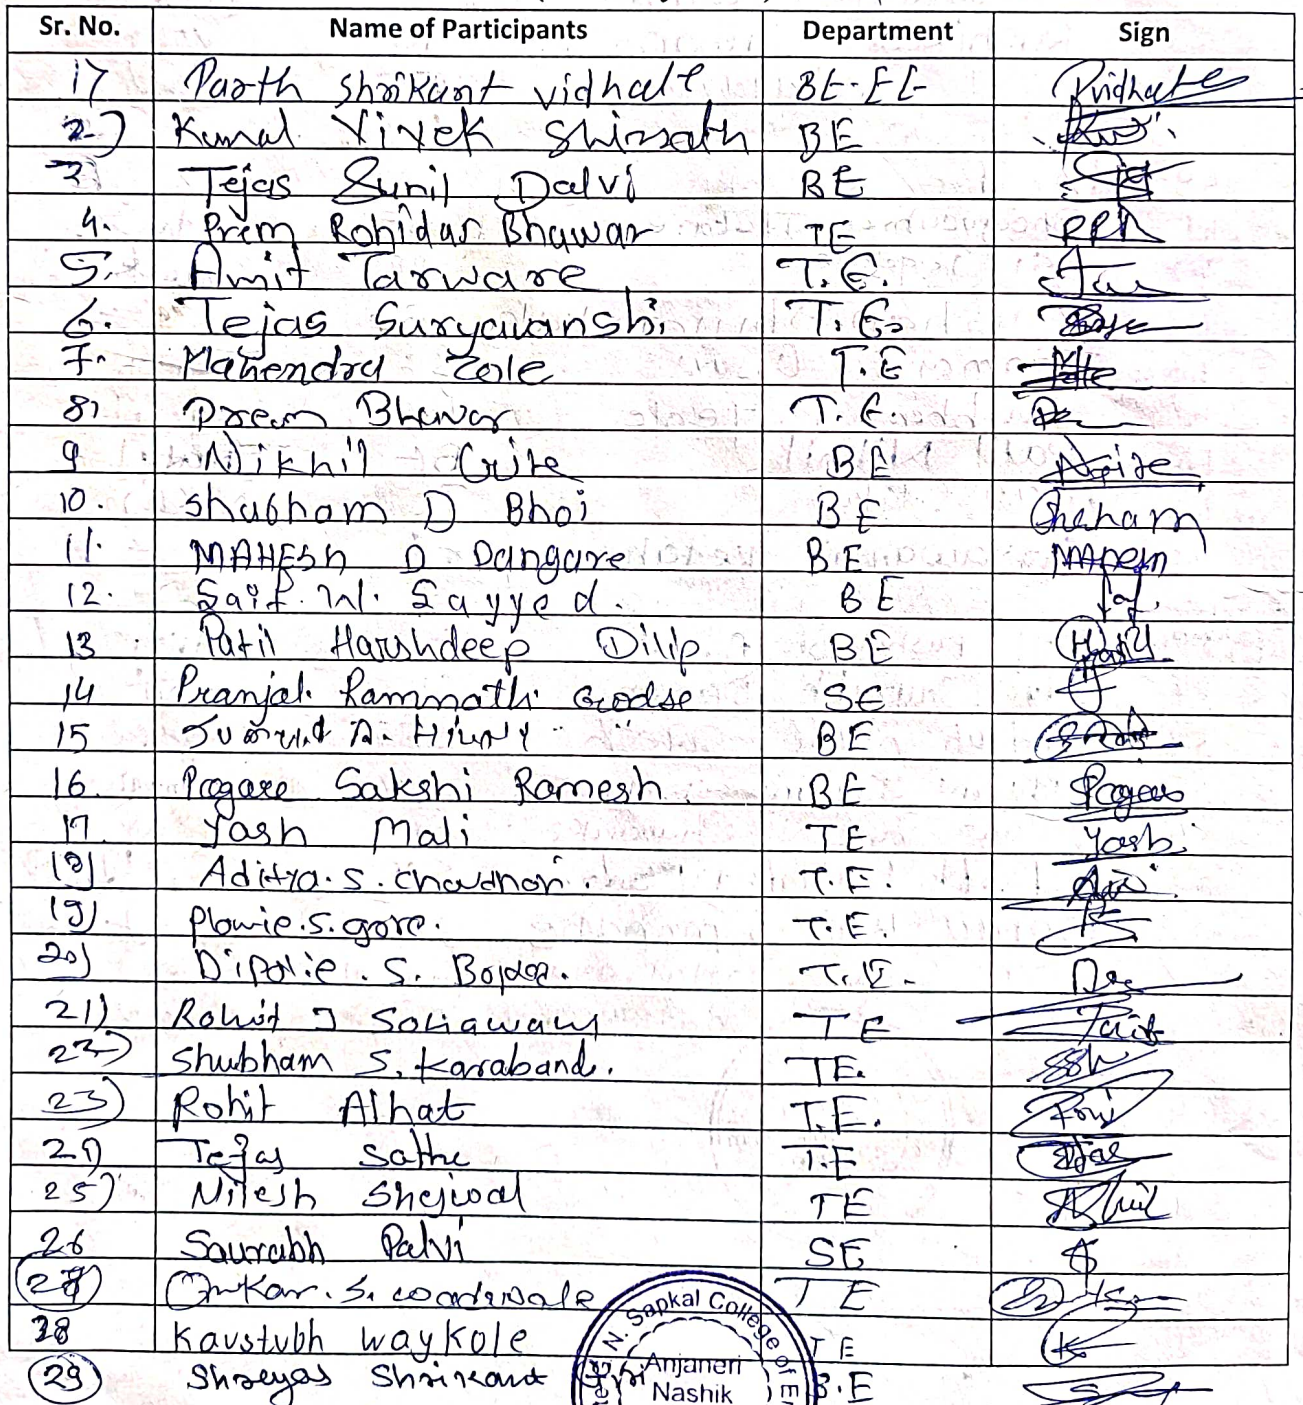 Sr. No. Name of Participants Department Sign
1) Parth Shrikant vidhate BE-EE Pvidhate
2) Kunal Vivek Shirsath BE
3 Tejas Sunil Dalvi BE
4. Prem Rohidas Bhawar TE PRB
5. Amit Tarware T.E.
6. Tejas Suryavanshi T.E.
7. Mahendra Zole T.E
8) Prem Bhavar T.E.
9 Nikhil Gite BE Ngite
10. Shubham D Bhoi BE Shubham
11. MAHESh D Dangare BE MAhesh
12. Saif. W. Sayyed. BE
13 Patil Harshdeep Dilip BE HPatil
14 Pranjal Ramnath Godse SE
15 BE
16. Pagare Sakshi Ramesh. BE Pagare
17 Yash Mali TE Yash
18) Aditya.S.Chaudhari. T.E.
19) S.gore. T.E.
20) S. T.E.
21) Rohit J TE
22) Shubham S. Karaband. TE. SSK
23) Rohit Alhat T.E.
24) Tejas Sathe T.E
25) Nilesh Shejwal TE
26 Saurabh Palvi SE
27 Omkar.S. TE
28 Kaustubh waykole TE K
29 Shreyas Shrikant B.E
N. Sapkal College of En
Anjaneri
Nashik